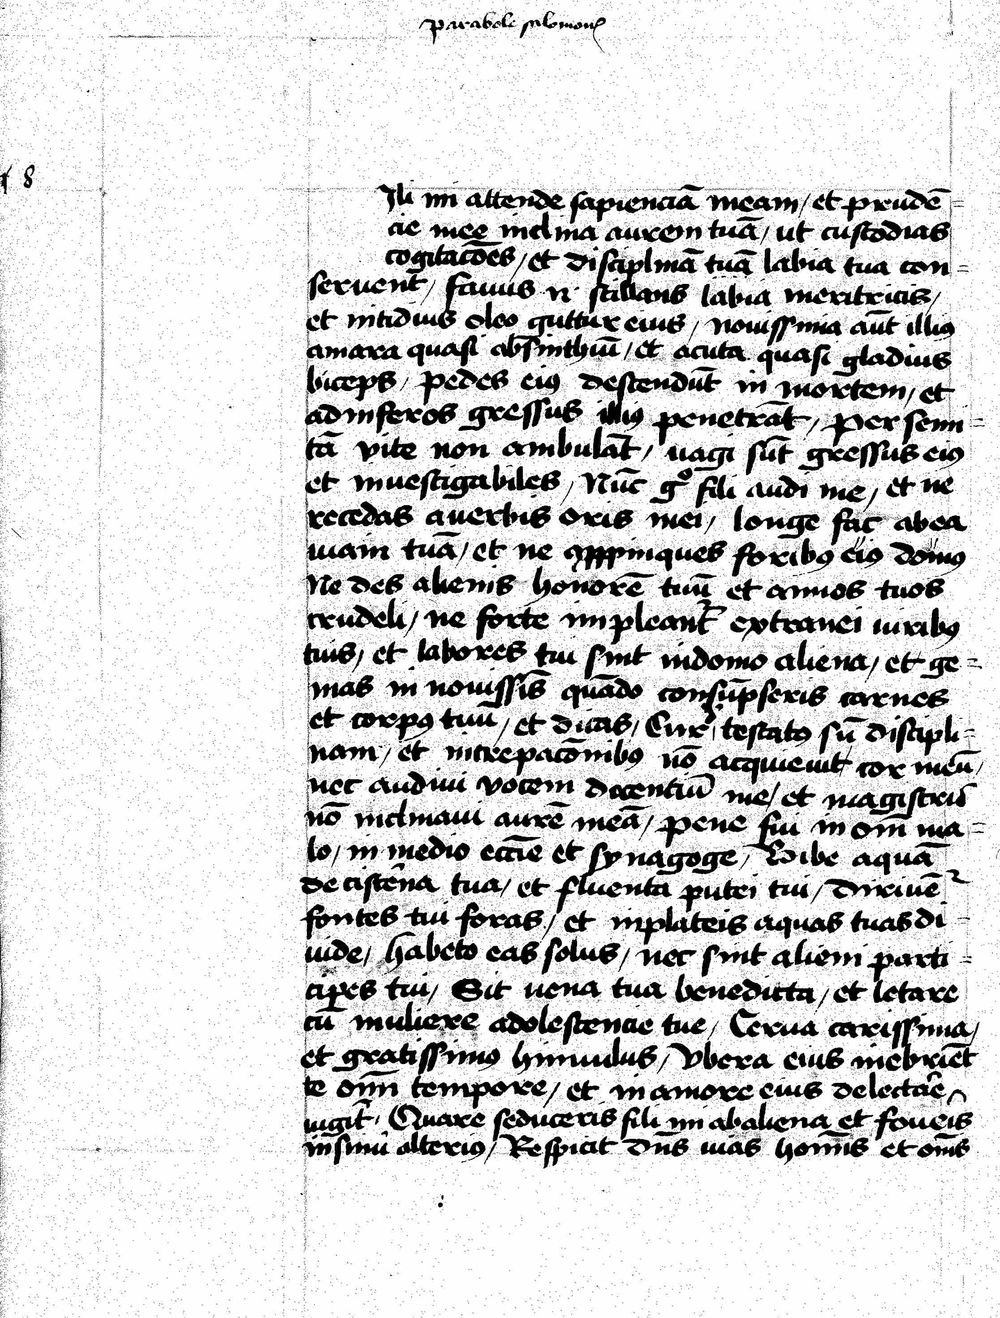 Parabole salomonis
8
Ili mi attende sapienciā meam / et prudē=
cie mee inclina aurem tuā / ut custodias
cogitacōes / et disciplinā tuā labia tua con=
seruent / Fauus .n. stillans labia meritricis /
et nitidius oleo guttur eius / nouissima aūt illius
amara quasi absinthiū / et acuta quasi gladius
biceps / Pedes eius descendūt in mortem / et
ad inferos gressus illius penetrāt / Per semi=
tā vite non ambulāt / uagi sūt gressus eius
et inuestigabiles / Nūc gͦ fili audi me / et ne
recedas a uerbis oris mei / longe fac ab ea
uiam tuā / et ne appropinques foribus eius domus
Ne des alienis honorē tuū et annos tuos
crudeli / ne forte impleant̃ extranei uiribus
tuis / et labores tui sint in domo aliena / et ge=
mas in nouissīs quādo consūpseris carnes
et corpus tuū / et dicas / Cur testatus sū discipli=
nam / et increpacōnibus nō acquieuit cor meū /
nec audiui vocem docentiū me / et magistris
nō inclinaui aurē meā / pene fui in om̄i ma=
lo / in medio ecc̄ie et synagoge / Bibe aquā
de cisterna tua / et fluenta putei tui / Diriuēt̃
fontes tui foras / et in plateis aquas tuas di=
uide / habeto eas solus / nec sint alieni parti=
cipes tui / Sit uena tua benedicta / et letare
cū muliere adolescencie tue / Cerua carissima /
et gratissimus hinnulus / Vbera eius inebriēt
te om̄i tempore / et in amore eius delectare
iugit̃ / Quare seduceris fili mi ab aliena et foueris
in sinu alterius / Respicit dn̄s uias hoīnis et om̄s